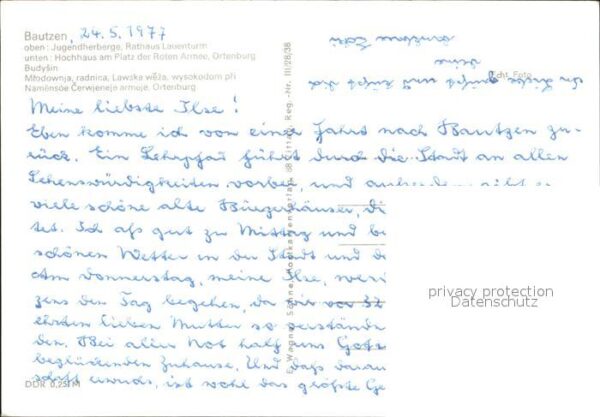 Bautzen, 24.5.1977
oben: Jugendherberge, Rathaus Lauenturm
unten: Hochhaus am Platz der Roten Armee, Ortenburg
Budyšin
Młodownja, radnica, Lawska wěža, wysokodom při
Naměnsće Čerwjeneje armeje, Ortenburg
Echt Foto
Meine liebste Ilse!
Eben komme ich von einer Fahrt nach Bautzen zu-
rück. Ein Lehrpfad führt durch die Stadt an allen
Sehenswürdigkeiten vorbei, und außerdem gibt es
viele schöne alte Bürgerhäuser, di
tet. Ich aß gut zu Mittag und be
schönen Wetter in der Stadt und
Am Donnerstag, meine Ilse, 
zens den Tag begehen, da wir vor
ehrten lieben Mutter so verständ
den. Bei aller Not half uns Gott
beglückenden Zuhause. Und daß darau
schaft wurde, ist wohl das größte Ge
DDR 0,25 M
privacy protection
Datenschutz